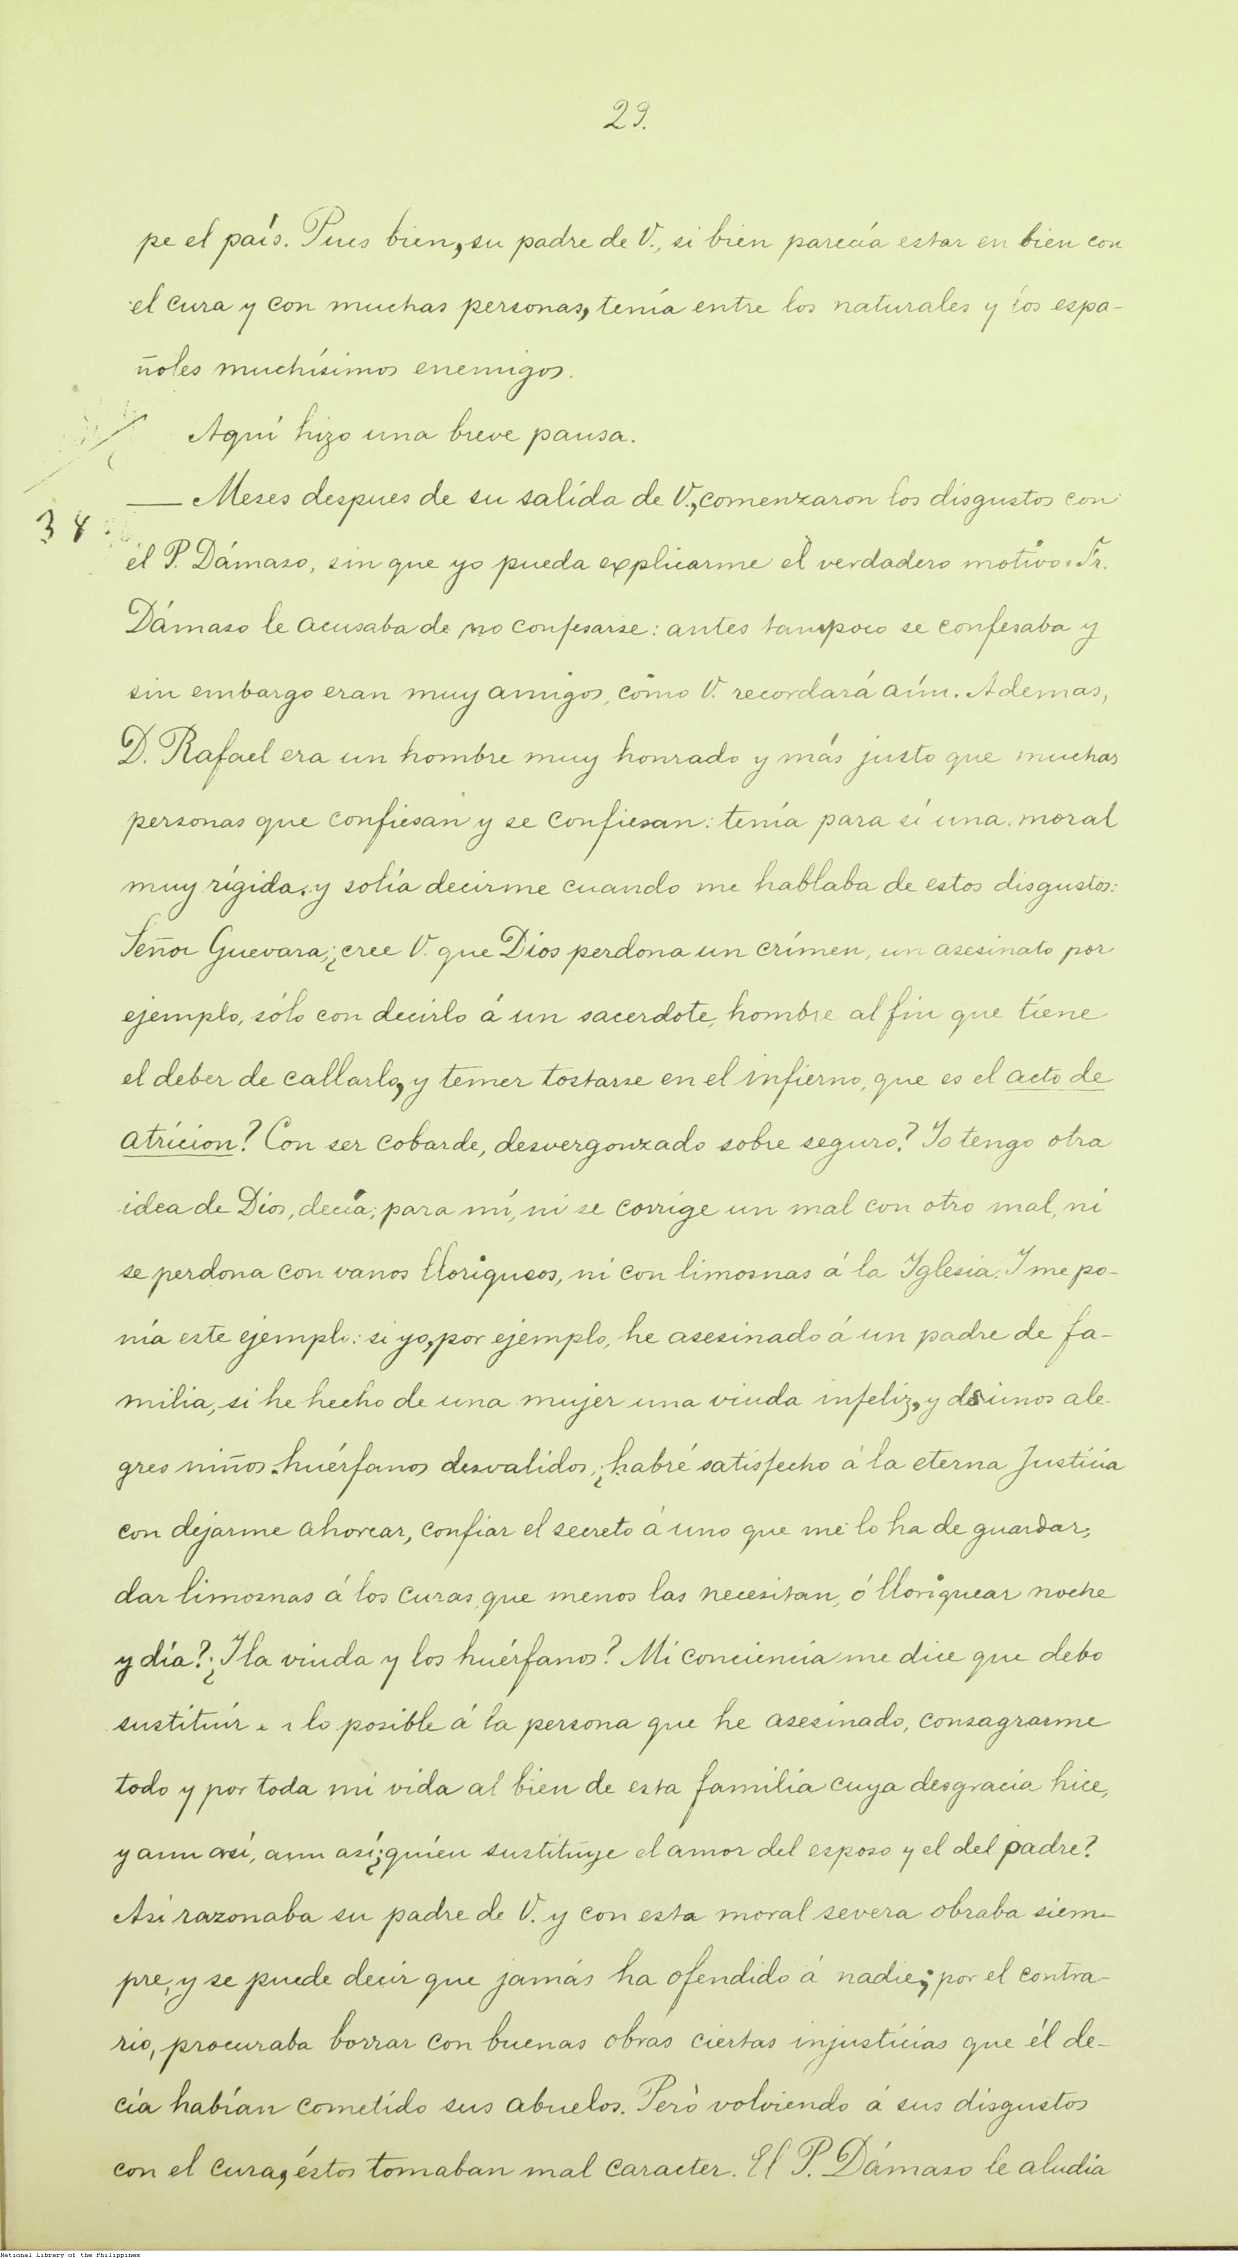 29.
pe el país. Pues bien, su padre de V., si bien parecía estar en bien con
el cura y con muchas personas, tenía entre los naturales y los espa-
ñoles muchísimos enemigos.
Aquí hizo una breve pausa.
— Meses despues de su salida de V., comenzaron los disgustos con
38
el P. Dámaso, sin que yo pueda explicarme el verdadero motivo. Fr.
Dámaso le acusaba de no confesarse: antes tampoco se confesaba y
sin embargo eran muy amigos, como V. recordará aún. Ademas,
D. Rafael era un hombre muy honrado y más justo que muchas
personas que confiesan y se confiesan: tenía para sí una moral
muy rígida, y solía decirme cuando me hablaba de estos disgustos:
Señor Guevara, ¿cree V. que Dios perdona un crímen, un asesinato por
ejemplo, sólo con decirlo á un sacerdote, hombre al fin que tiene
el deber de callarlo, y temer tostarse en el infierno, que es el acto de
atricion? Con ser cobarde, desvergonzado sobre seguro? Yo tengo otra
idea de Dios, decía; para mí, ni se corrige un mal con otro mal, ni
se perdona con vanos lloriqueos, ni con limosnas á la Iglesia. Y me po-
nía este ejemplo: si yo, por ejemplo, he asesinado á un padre de fa-
milia, si he hecho de una mujer una viuda infeliz, y de unos ale-
gres niños huérfanos desvalidos, ¿habré satisfecho á la eterna Justicia
con dejarme ahorcar, confiar el secreto á uno que me lo ha de guardar,
dar limosnas á los curas, que menos las necesitan, ó lloriquear noche
y día? ¿Y la viuda y los huérfanos? Mi conciencia me dice que debo
sustituir en lo posible á la persona que he asesinado, consagrarme
todo y por toda mi vida al bien de esta familia cuya desgracia hice,
y aun así, aun así ¿quién sustituye el amor del esposo y el del padre?
Así razonaba su padre de V. y con esta moral severa obraba siem-
pre, y se puede decir que jamás ha ofendido á nadie; por el contra-
rio, procuraba borrar con buenas obras ciertas injusticias que él de-
cía habían cometido sus abuelos. Pero volviendo á sus disgustos
con el cura, éstos tomaban mal caracter. El P. Dámaso le aludía
National Library of the Philippines